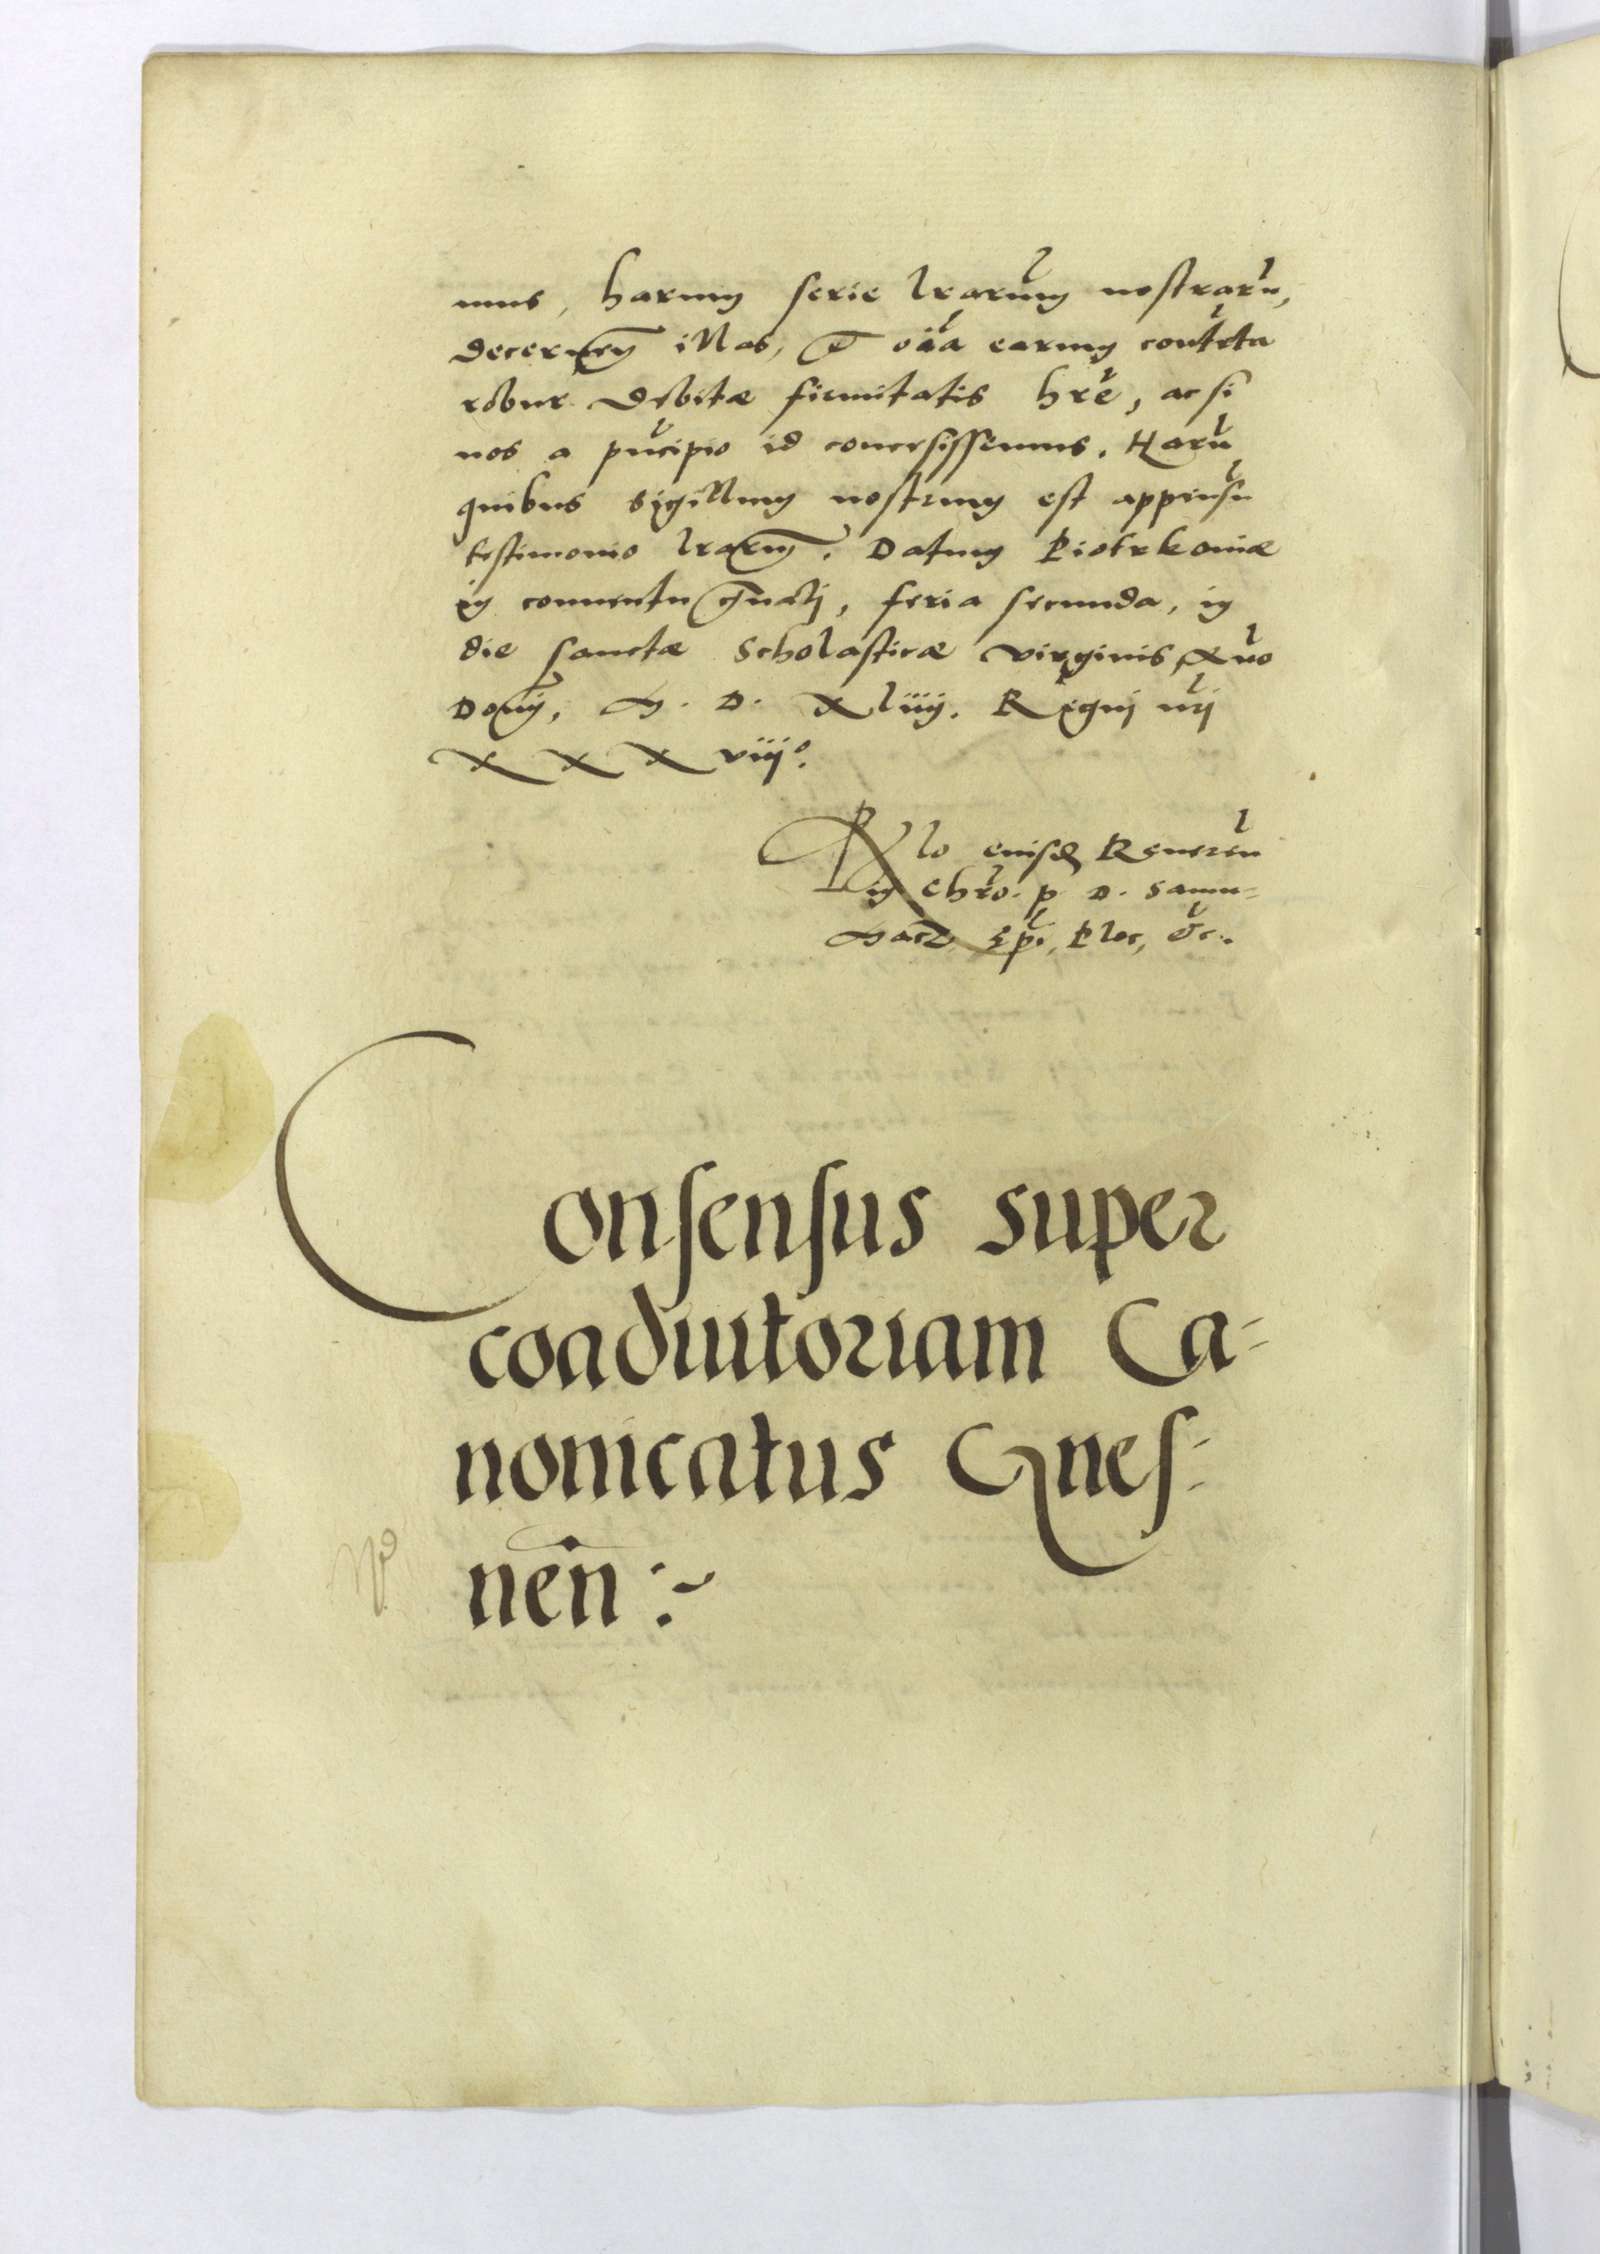 mus, harum serie lrarum nostraru,
decernen illas, et oīa earum contēta
robur debitæ firmitatis hrē, ac si
nos a prīcipio id concessissemus. Harū
quibus sigillum nostrum est appensū
testimonio lrarum. Datum Piotrkoviæ
in conventu gnali, feria secunda, in
die sanctæ Scholasticæ virginis, Ano
Domi, M. D. Xliiij. Regni nri
X X X viijº.
Rlo eiusd Reveren
in Chro. p. D. Samu=
Macz, Epi, Ploc, &c.
Consensus super
coadiutoriam Ca=
nonicatus Gnes=
nen̄ :~